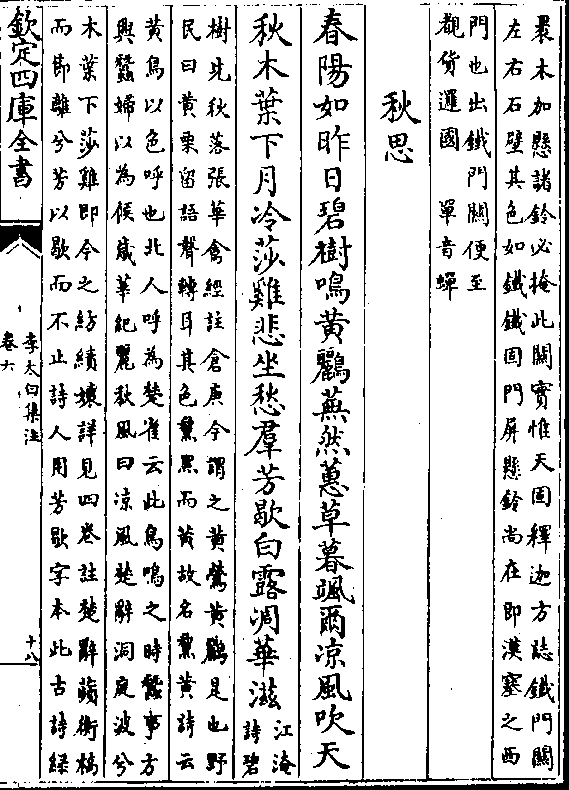 衆木加懸諸鈴必掩此關實惟天固釋迦方誌鐵門關
左右石壁其色如鐵鐵固門扉懸鈴尚在即漢塞之西
門也出鐵門關便至
覩貨邏國　單音蟬
秋思
春陽如昨日碧樹鳴黄鸝蕪然蕙草暮颯爾凉風吹天
秋木葉下月冷莎雞悲坐愁羣芳歇白露凋華滋
江淹
詩碧
樹先秋落張華禽經註倉庚今謂之黄鶯黄鸝是也野
民曰黄栗留語聲轉耳其色黧黑而黄故名黧黄詩云
黄鳥以色呼也北人呼為楚雀云此鳥鳴之時蠶事方
興蠶婦以為候歲華紀麗秋風曰凉風楚辭洞庭波兮
木葉下莎雞即今之紡績壞詳見四卷註楚辭蘋蘅槁
而節離兮芳以歇而不止詩人用芳歇字本此古詩緑
欽定四庫全書
李太白集注
卷六
十八